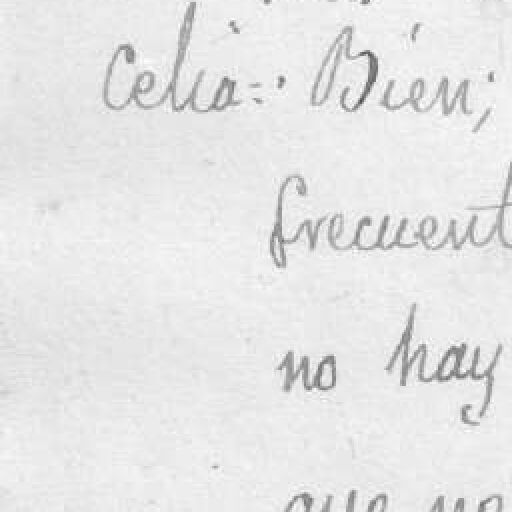 Celia=: Bien;
frecuent
no hay
que no